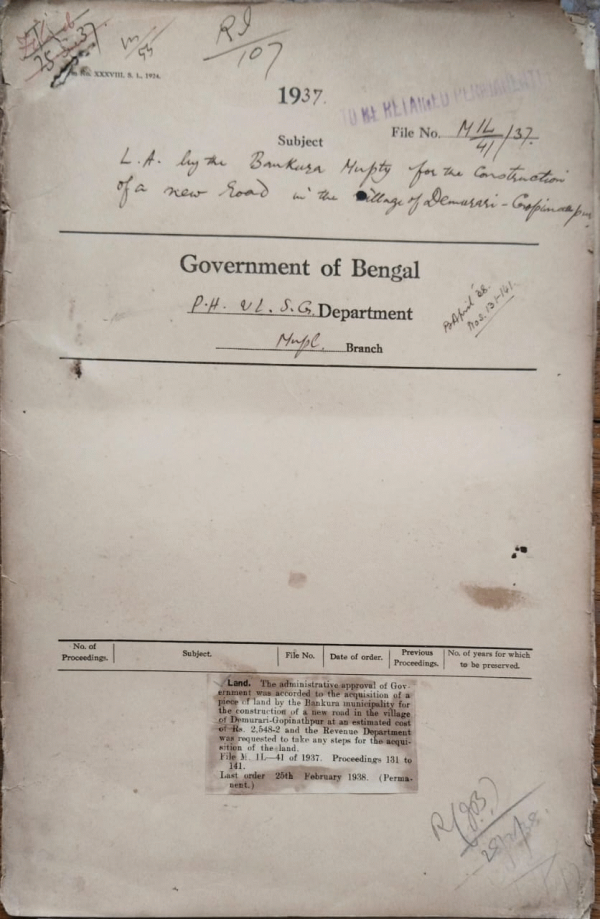 25.5.37
R I
107
XXXVIII, S. I., 1934.
1937.
TO BE RETAINED PERMANENTLY
Subject
File No. M 1L/41/37.
L.A. by the Bankura Mupty for the Construction
of a new Road in the village of Demurari-Gopinathpur
Government of Bengal
P.H. & L.S.G. Department
Mupl. Branch
P. April '38.
Nos. 131-141.
No. of Proceedings. | Subject. | File No. | Date of order. | Previous Proceedings. | No. of years for which to be preserved.
Land. The administrative approval of Gov-
ernment was accorded to the acquisition of a
piece of land by the Bankura municipality for
the construction of a new road in the village
of Demurari-Gopinathpur at an estimated cost
of Rs. 2,548-2 and the Revenue Department
was requested to take any steps for the acqui-
sition of the land.
File M. 1L—41 of 1937. Proceedings 131 to
141.
Last order 25th February 1938. (Perma-
nent.)
R(JB)